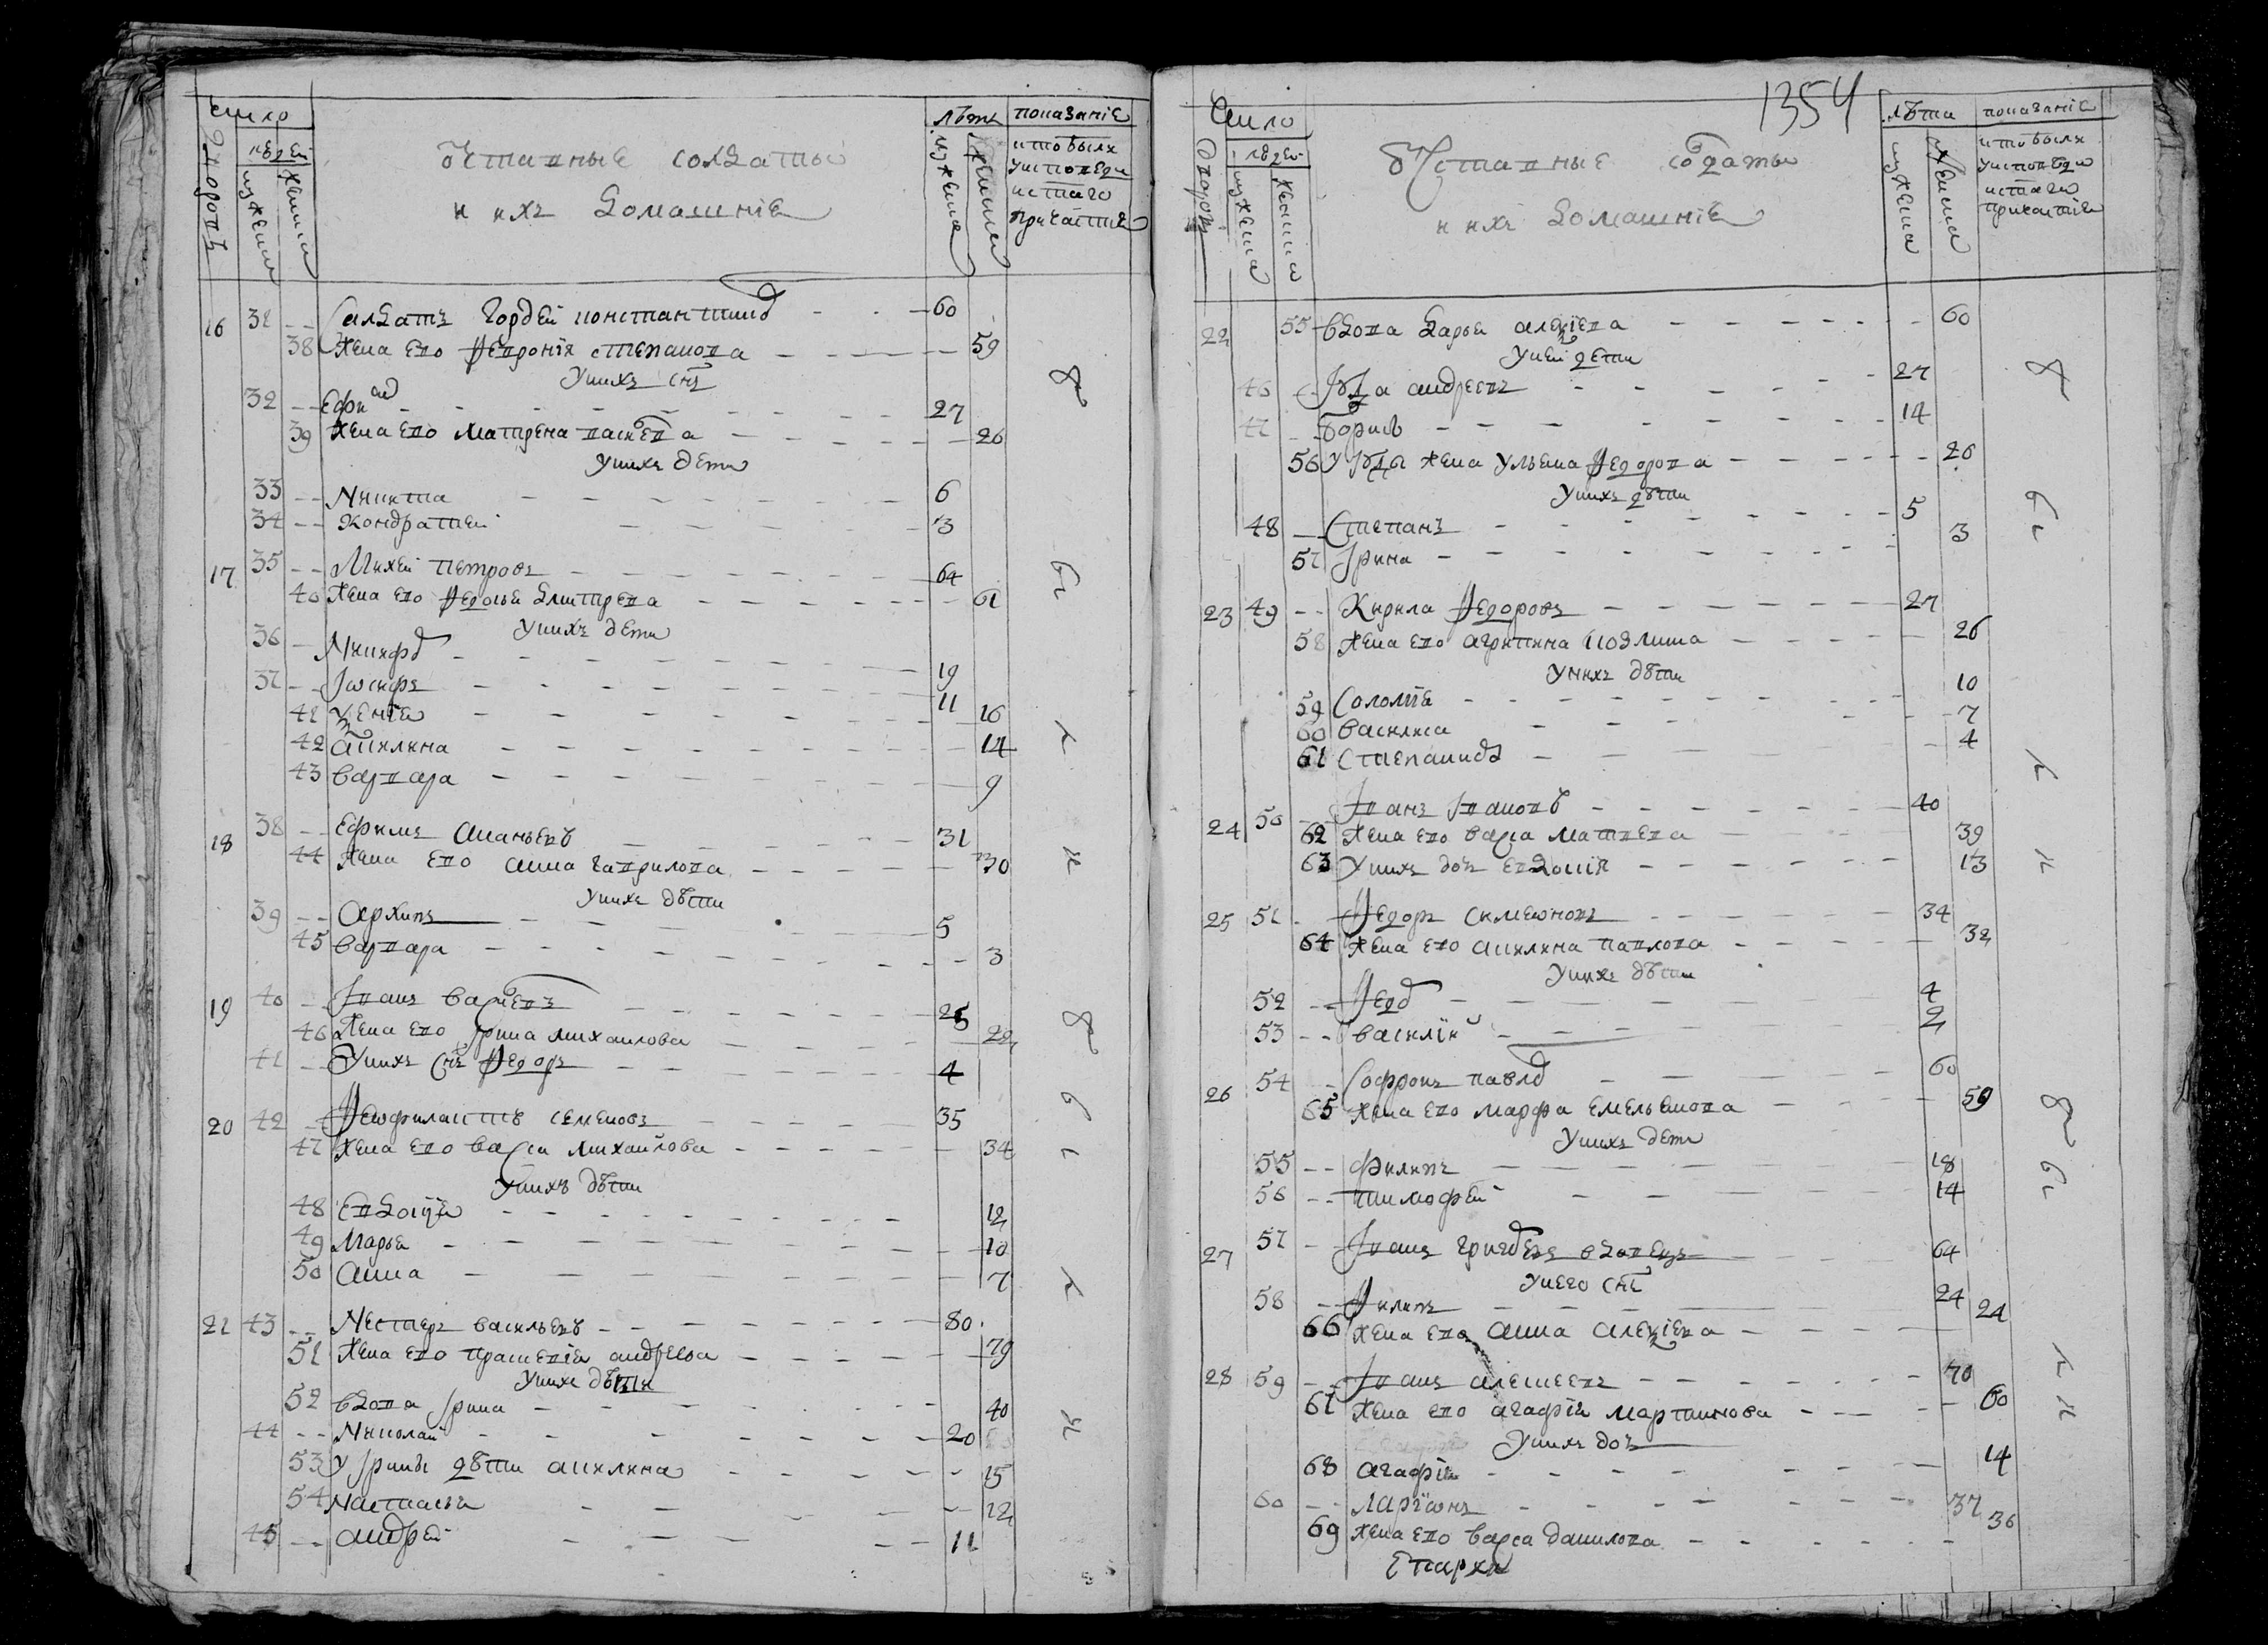 Число
дворовъ
людей
мужеска
женска
отставные солдаты
и ихъ домашние
лѣта
мужеска
женска
показание
кто былъ
у исповеди
и стаго
причастия
16 31 -- Салдатъ Гордей Константинов 60
38 Жена ево Феврония Степанова 59
у нихъ снъ
32 -- Ефим 27
39 Жена ево Матрена 26
у нихъ дети
33 -- Никита 6
34 -- Кондратей 3
17 35 -- Михей Петровъ 64
40 Жена ево Федосья Дмитрева 61
у нихъ дети
36 -- Никифор 19
37 -- Иосифъ 11
41 Ксения 16
42 Акилина 14
43 Варвара 9
18 38 -- Ефимъ Ананьевъ 31
44 Жена ево Анна Гаврилова 30
у нихъ дѣти
39 -- Архипъ 5
45 Варвара 3
19 40 -- Иванъ Васильевъ 25
46 Жена ево Ирина Михаилова 22
41 -- у нихъ снъ Федоръ 4
20 42 -- Феофилактъ Семеновъ 35
47 Жена ево Васса Михайлова 34
у нихъ дѣти
48 Евдокия 12
49 Марья 10
50 Анна 7
21 43 -- Нестеръ Васильевъ 80
51 Жена ево Прасковия Андреева 79
у нихъ дѣти
52 вдова Ирина 40
44 -- Николай 20
53 у Ирины дѣти Акилина 15
54 Настасья 12
45 -- Андрей 11
1354
Число
дворовъ
людей
мужеска
женска
отставные солдаты
и ихъ домашние
лѣта
мужеска
женска
показание
кто былъ
у исповеди
и стаго
причастия
22 55 вдова Дарья Алексиева 60
у ней дети
46 -- Андреевъ 27
47 -- Борисъ 14
56 жена Ульяна Федорова 26
у нихъ дѣти
48 -- Степанъ 5
57 Ирина 3
23 49 -- Кирила Федоровъ 27
58 Жена ево Агрипина 26
у нихъ дѣти
59 Соломия 10
60 Василиса 7
61 Степанида 4
24 50 -- Иванъ Ивановъ 40
62 Жена ево Васса Матвева 39
63 у нихъ дочь Евдокия 13
25 51 - Федоръ Симеоновъ 34
64 Жена ево Акилина Павлова 32
у нихъ дѣти
52 -- Федор 4
53 -- Василий 2
26 54 -- Софронъ Павлов 60
65 Жена ево Марфа Емельянова 59
у нихъ дети
55 -- Филипъ 18
56 -- Тимофей 14
27 57 - Иванъ Григорьевъ вдовецъ 64
у него снъ
58 -- Филипъ 24
66 Жена ево Анна Алексиева 24
28 59 -- Иванъ Алексеевъ 70
67 Жена ево Агафия Мартинова 60
у нихъ дочь
68 Агафия 14
60 -- Ларионъ 37
69 Жена ево Васса Данилова 36